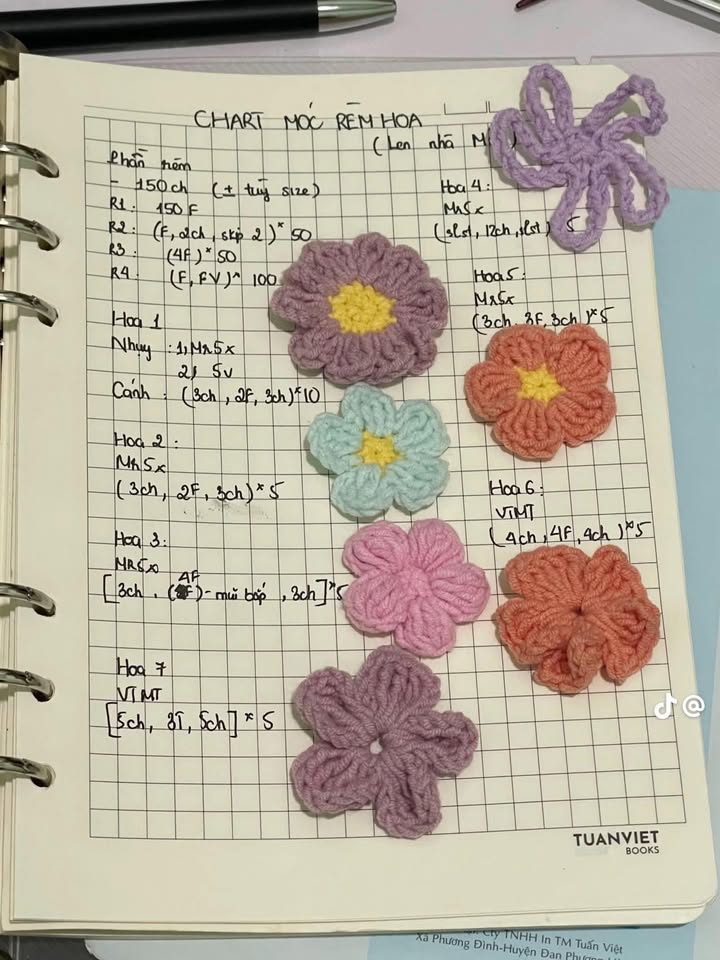 CHART MÓC RÈM HOA
(Len nhà M
Phần rèm
- 150ch (± tuỳ size)
R1: 150F
R2: (F, 2ch, skip 2)*50
R3: (4F)*50
R4: (F, FV)^ 100
Hoa 1
Nhuỵ: 1, Mr5x
2, 5v
Cánh: (3ch, 2F, 3ch)*10
Hoa 2:
Mr5x
(3ch, 2F, 3ch)*5
Hoa 3:
MR5x
[3ch, (4F)-mũi bắp, 3ch]*5
Hoa 7
VTMT
[5ch, 3T, 5ch]*5
Hoa 4:
Mr5x
(slst, 12ch, slst) 5
Hoa 5:
Mr5x
(3ch, 3F, 3ch)*5
Hoa 6:
VTMT
(4ch, 4F, 4ch)*5
TUANVIET
BOOKS
Cty TNHH In TM Tuấn Việt
Xã Phương Đình-Huyện Đan Phượng